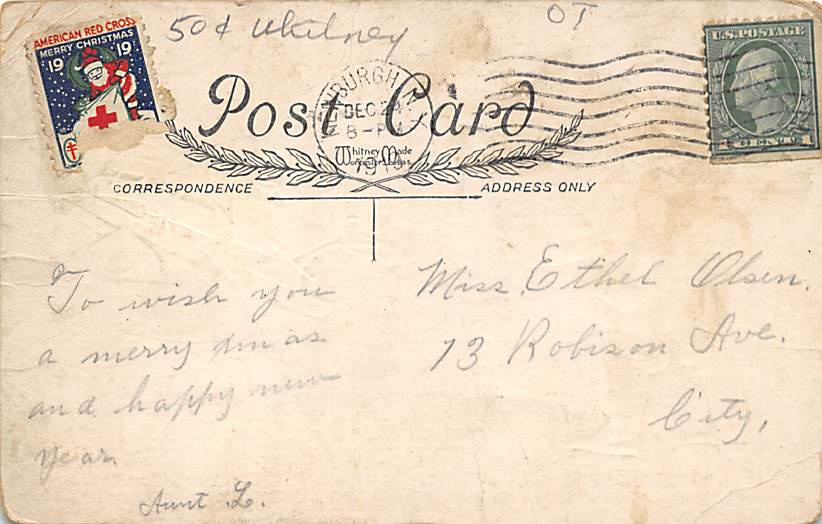 50¢ Whitney
OT
AMERICAN RED CROSS
MERRY CHRISTMAS
19 19
U.S. POSTAGE
1 CENT 1
Post Card
DEC 23
8-PM
1919
Whitney Made
Worcester, Mass
CORRESPONDENCE
ADDRESS ONLY
To wish you
a merry xmas
and happy new
year.
Aunt L.
Miss Ethel Olsen.
73 Robison Ave.
City,